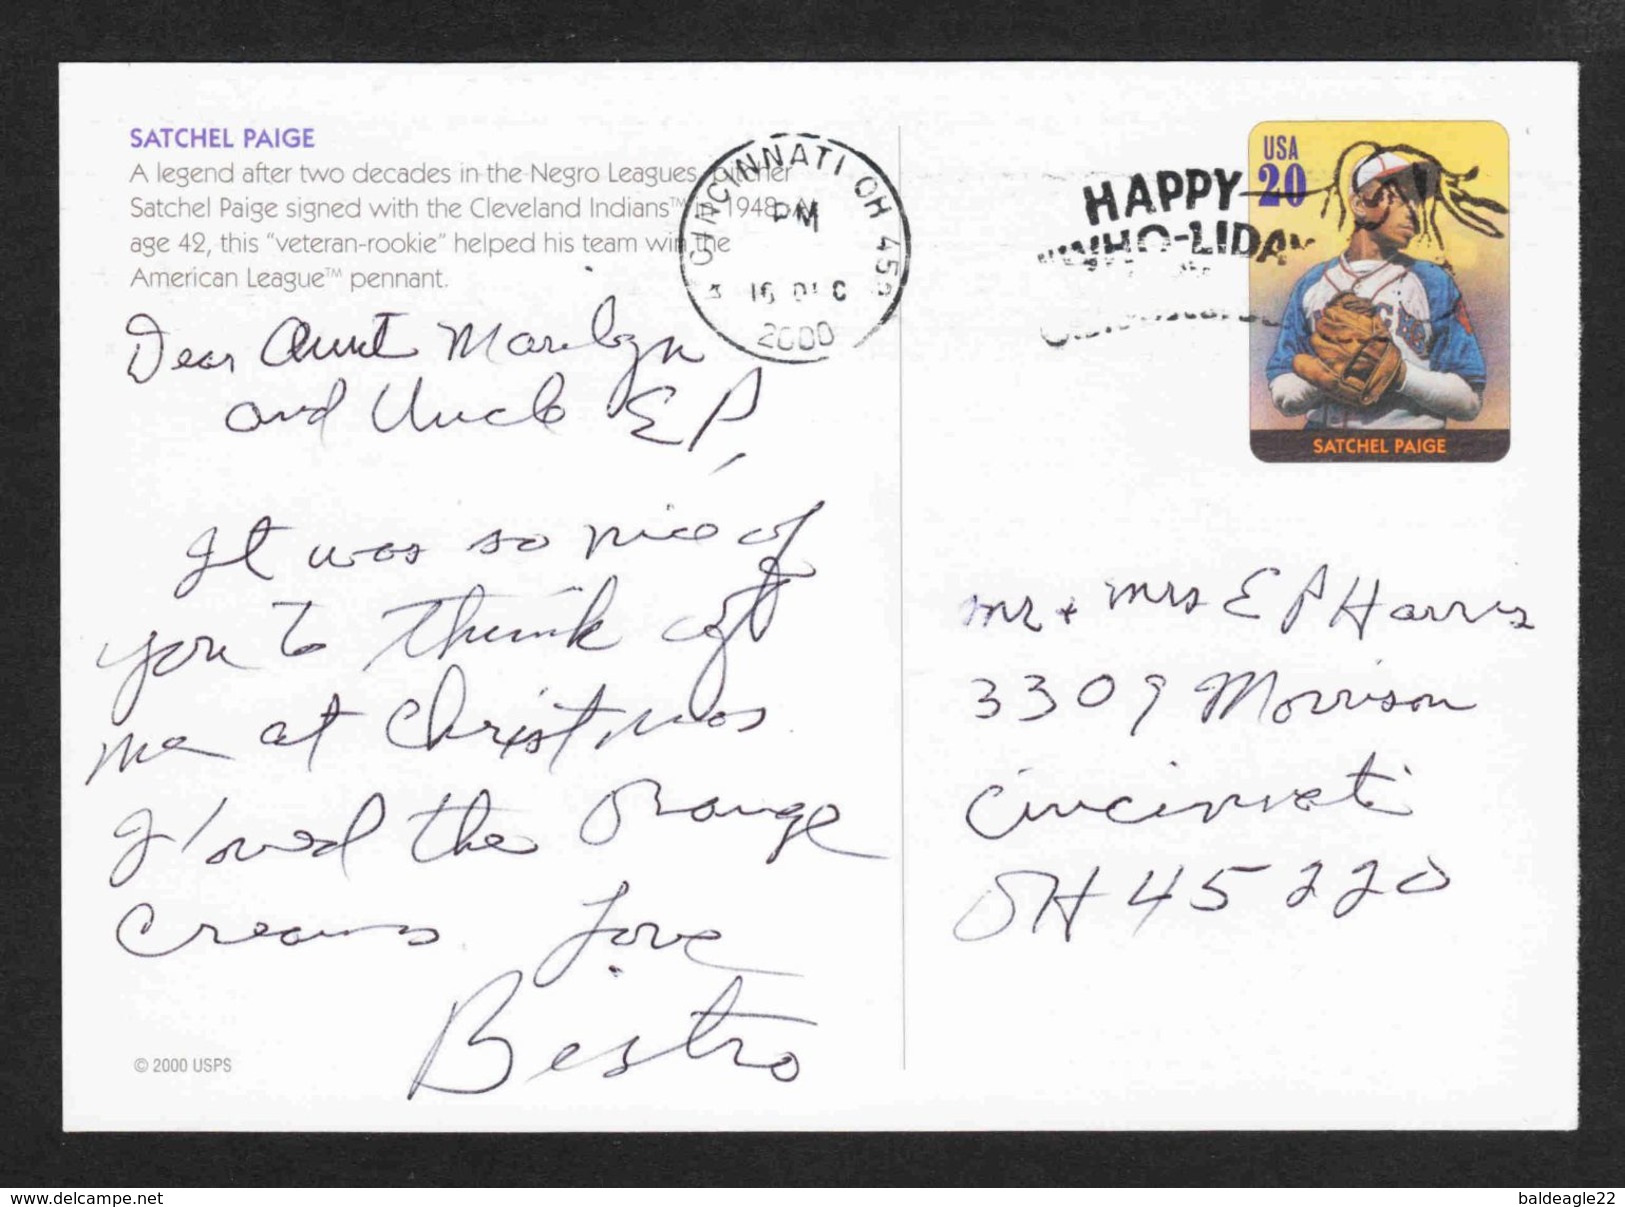 SATCHEL PAIGE
A legend after two decades in the Negro Leagues, pitcher
Satchel Paige signed with the Cleveland Indians™ in 1948. At
age 42, this "veteran-rookie" helped his team win the
American League™ pennant.
Dear Aunt Marilyn
and Uncle EP,
It was so nice of
you to think of
me at Christmas.
I loved the orange
creams. Love
Bistro
© 2000 USPS
CINCINNATI OH
PM
16 DEC
2000
HAPPY
WHO-LIDAY
USA
20
SATCHEL PAIGE
Mr + Mrs E P Harris
3309 Morrison
Cincinnati
OH 45220
www.delcampe.net
baldeagle22